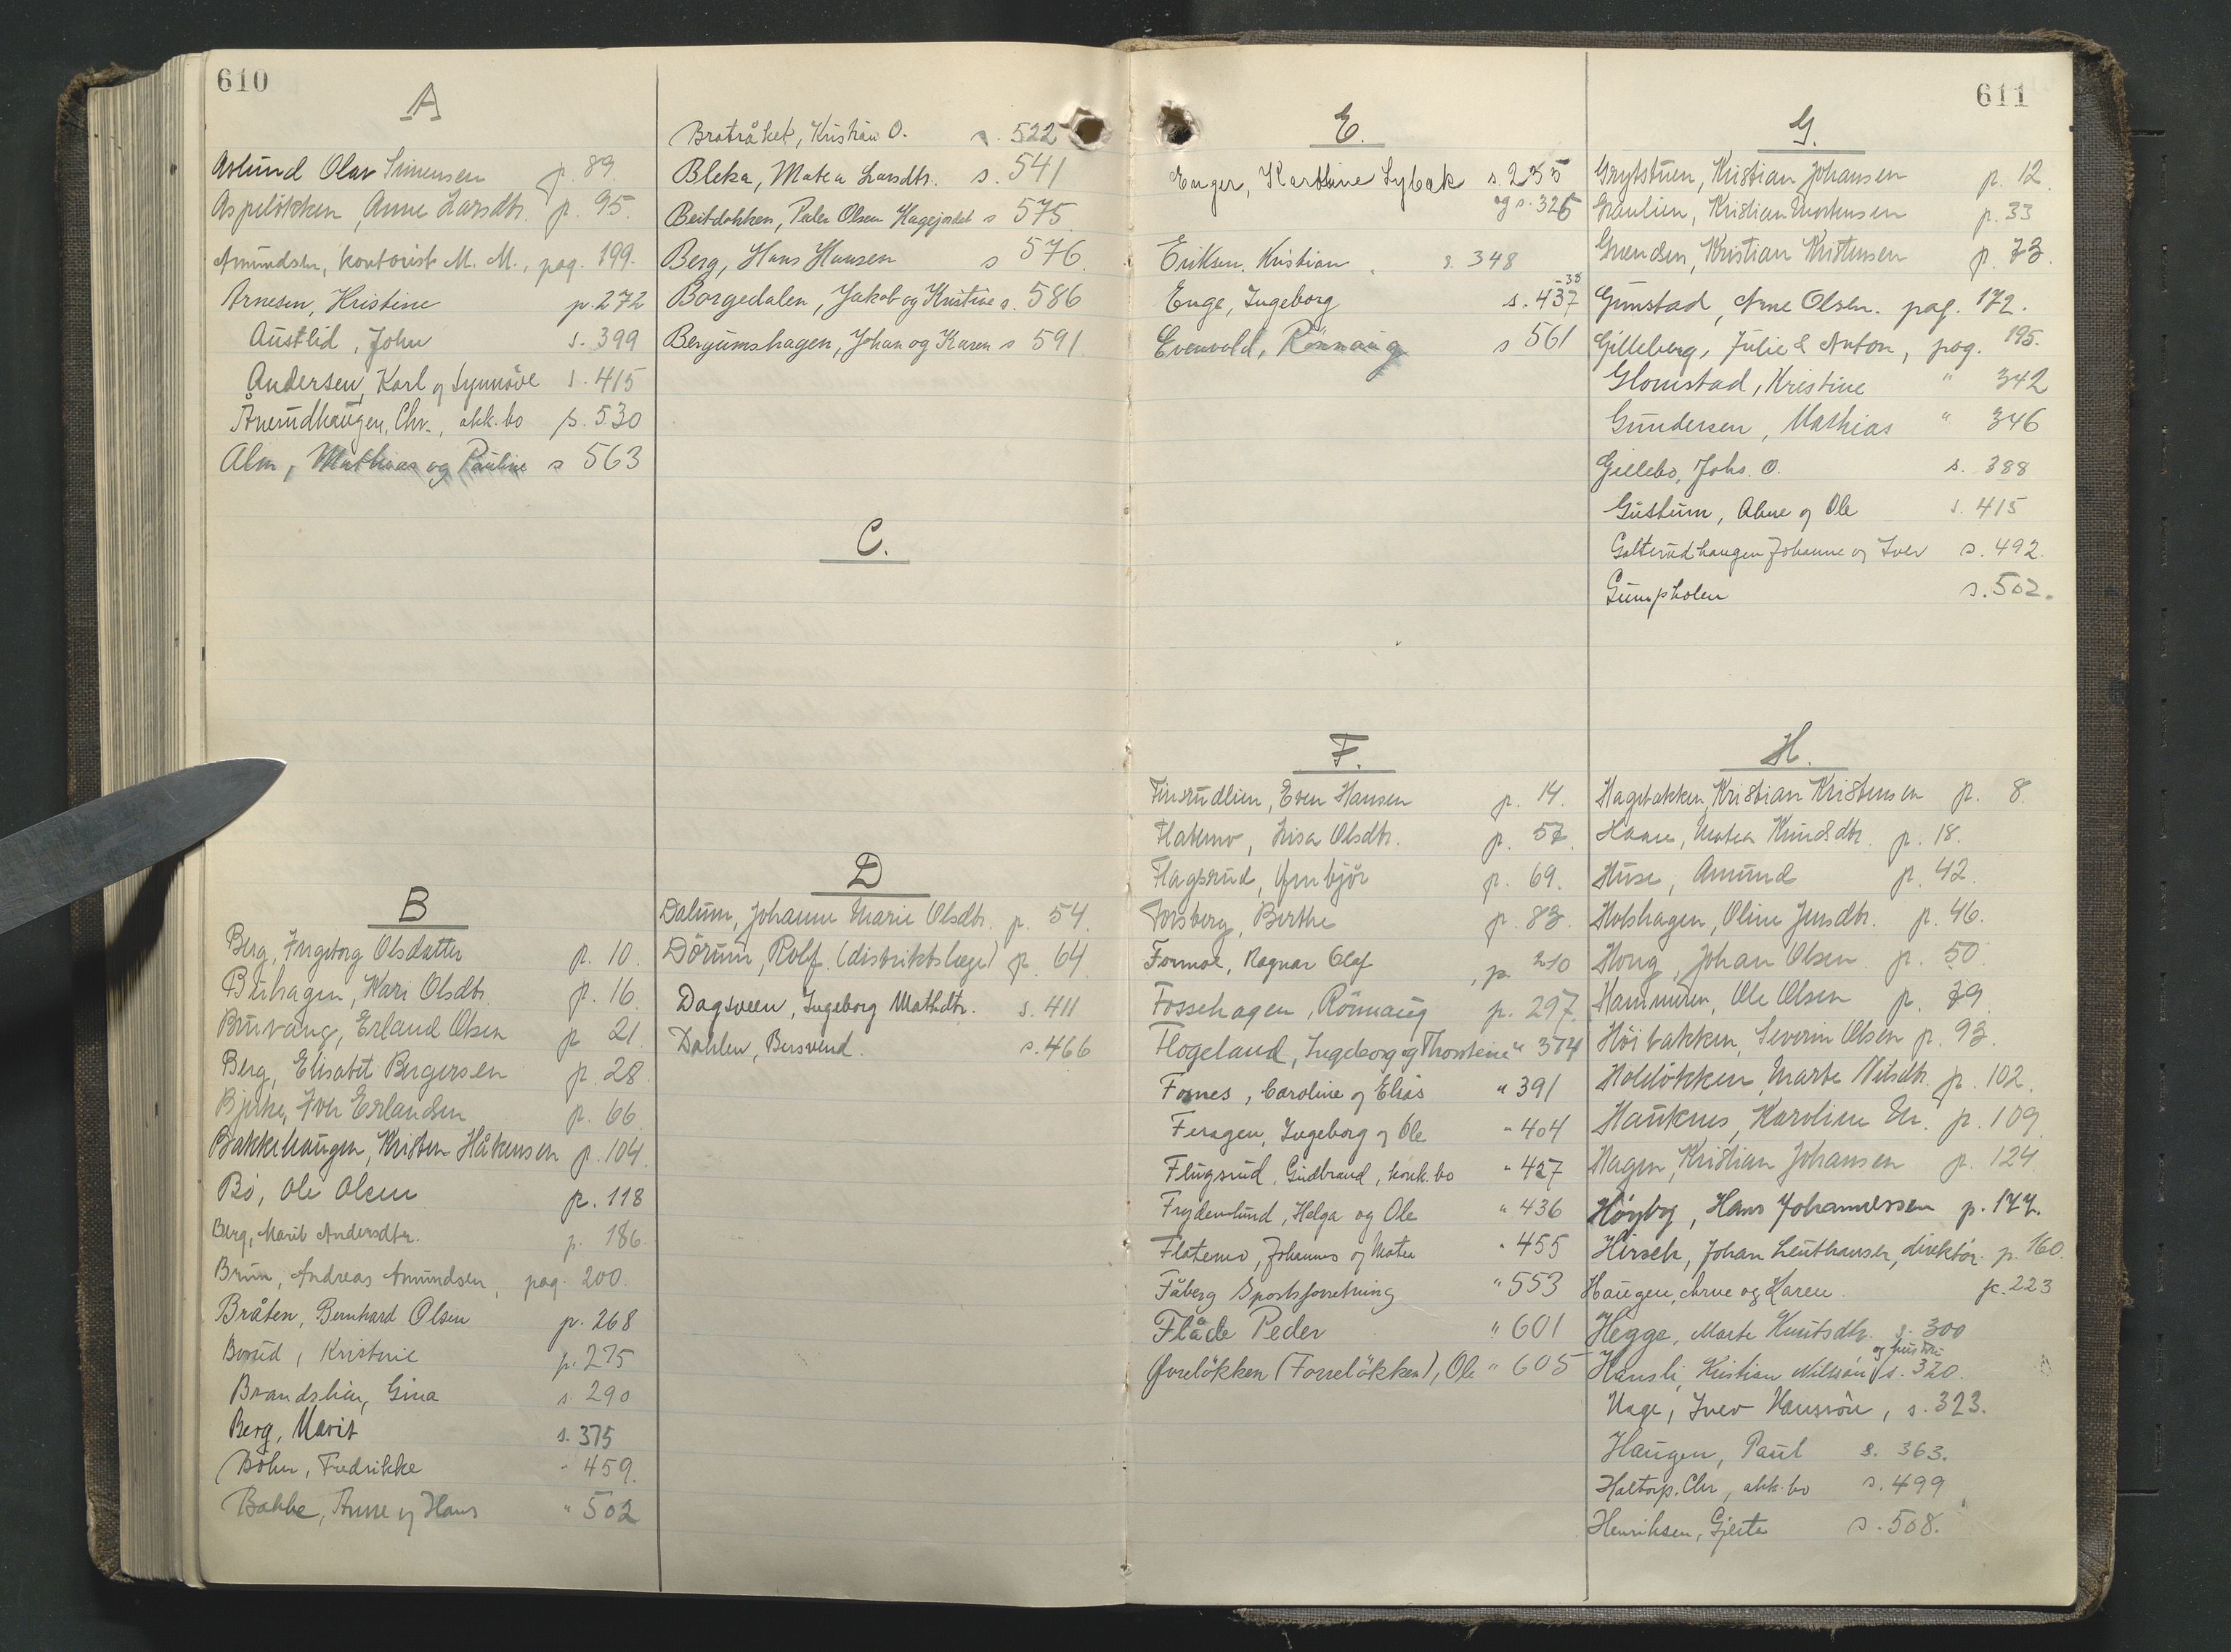 610
A
Aslund Olav Simensen p. 89
Aspelökken, Anne Larsdtr. p. 95.
Amundsen, kontorist M. M., pag. 199.
Arnesen, Kristine p. 272
Austlid, John s. 399
Andersen, Karl og Synnöve s. 415
Ånerudhaugen, Chr., akk.bo s. 530
Alm, Mathias og Pauline s 563
B
Berg, Ingeborg Olsdatter p. 10.
Buhagen, Kari Olsdtr. p. 16.
Bruvang, Erland Olsen p 21.
Berg, Elisabet Bergersen p. 28.
Bjerke, Iver Erlandsen p. 66
Bakkehaugen, Kristen Håkensen p. 104.
Bö, Ole Olsen p. 118
Berg, Marit Andersdtr. p. 186.
Bruun, Andreas Amundsen, pag. 200.
Bråten, Bernhard Olsen p. 268
Borud, Kristine p. 275
Brandslien, Gina s. 290
Berg, Marit s. 375
Böhn, Fredrikke " 459.
Bakke, Anne og Hans " 502
Brotråket, Kristian O. s. 522
Bleka, Matea Larsdtr. s. 541
Beitdokken, Peder Olsen Hagejordet s 575
Berg, Hans Hansen s 576.
Borgedalen, Jakob og Kristine s. 586
Bergumshagen, Johan og Karen s 591
C.
D
Dalum, Johanne Marie Olsdtr. p. 54.
Dörum, Rolf. (distriktslæge) p. 64
Dagsveen, Ingeborg Mathdtr. s. 411
Dahlen, Bersvend. s. 466
611
E.
Enger, Karoline Lybæk s. 235
og s. 326
Eriksen, Kristian s. 348
Enge, Ingeborg s. 437-38
Evenvold, Rönnaug s 561
F.
Finsrudlien, Even Hansen p. 14.
Flatmo, Lisa Olsdtr. p. 57.
Flagsrud, Gunbjör p. 69.
Forsberg, Berthe p. 83.
Formoe, Ragnar Olaf, p. 210
Fossehagen, Rönnaug p. 297.
Flogeland, Ingeborg og Thorsteine " 374
Fosnes, Caroline og Elias " 391
Feragen, Ingeborg og Ole " 404
Flugsrud, Gudbrand, konk.bo " 427
Frydenlund, Helga og Ole " 436
Flatemo, Johannes og Matea " 455
Fåberg Sportsforretning " 553
Flåde Peder " 601
Forelökken (Forrelökken), Ole " 605
G.
Grytstuen, Kristian Johansen p. 12.
Graulien, Kristian Mortensen p. 33
Grænden, Kristian Kristensen p. 73.
Gunstad, Arne Olsen. pag. 172.
Gilleberg, Julie & Anton, pag. 195.
Glomstad, Kristine " 342
Gundersen, Mathias " 346
Gillebo, Johs. O. s. 388
Gustum, Anne og Ole s. 415
Galterudhaugen Johanne og Iver s. 492.
Gumpholen s. 502.
H.
Hagebakken, Kristian Kristensen p. 8.
Haave, Matea Knudsdtr. p. 18.
Huse, Amund p. 42.
Holshagen, Oline Jensdtr. p. 46.
Houg, Johan Olsen p. 50.
Hammeren, Ole Olsen p. 79.
Höibakken, Severin Olsen p. 93.
Holelökken, Marte Nilsdtr. p. 102.
Hauknes, Karoline M. p. 109
Hagen, Kristian Johansen p. 124
Höyby, Hans Johannessen p. 177.
Hirsch, Johan Leuthauser, direktör. p. 160.
Haugen, Arne og Karen. p. 223
Hegge, Marte Knutsdtr. s. 300
Hansli, Kristian Nilssön og hustru s. 320.
Hage, Iver Hanssön, s. 323.
Haugen, Paul s. 363.
Haltorp, Chr, akk.bo s. 499
Henriksen, Gjerte s. 508.